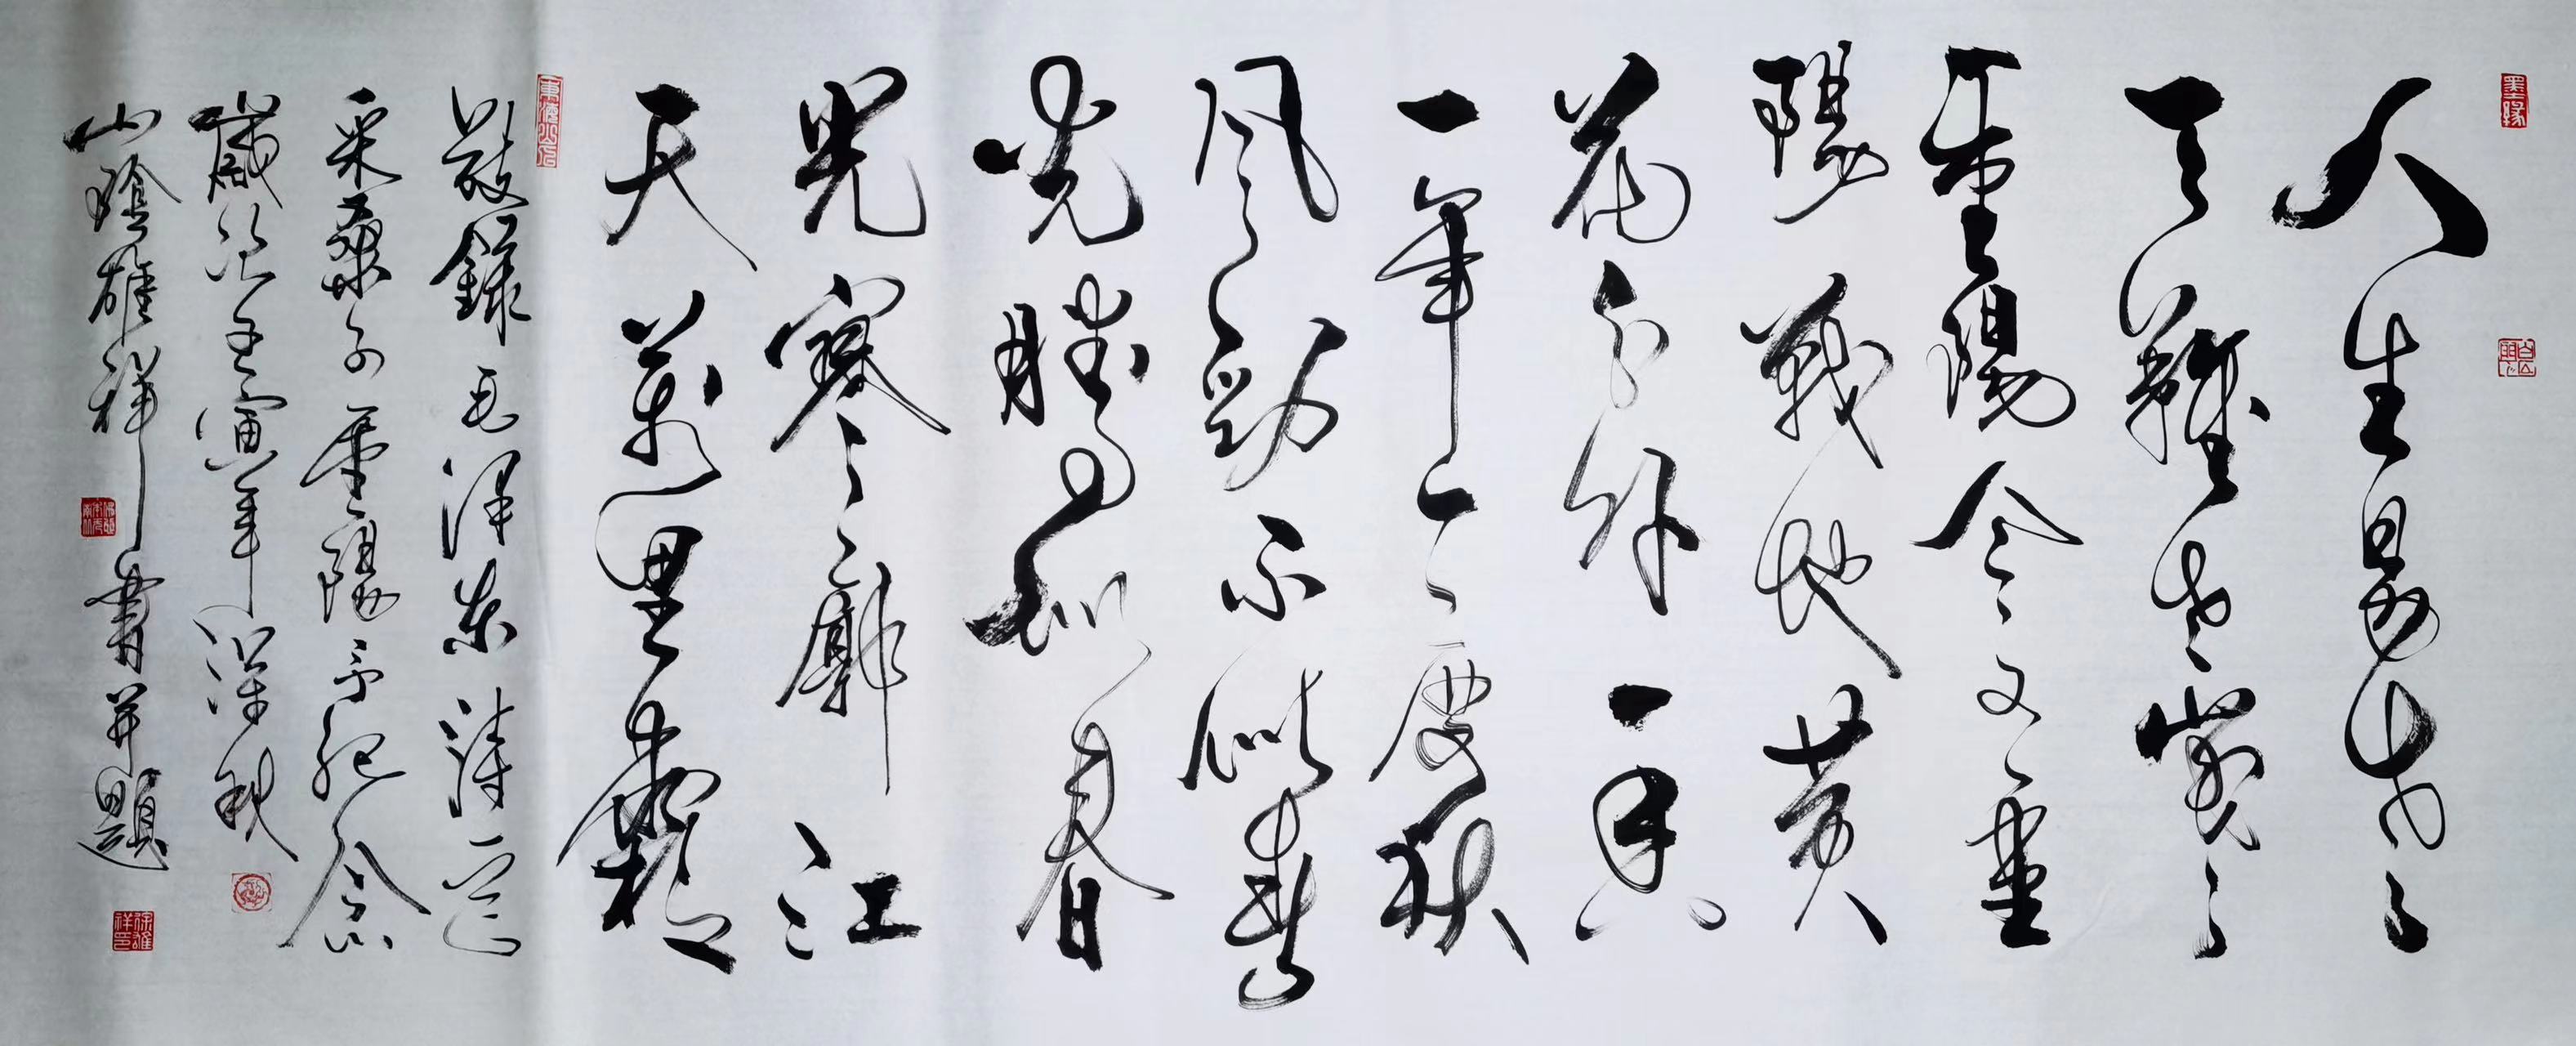 墨缘
人生易老
天難老歲歲
重陽今又重
陽戰地黄
花分外香
一年一度秋
风劲不似春
光勝似春
光寥廓江
天萬里霜
敬錄毛澤東詩一首
采桑子重陽予紀念
歲次壬寅年深秋
山陰雄祥書并題
徐雄祥印